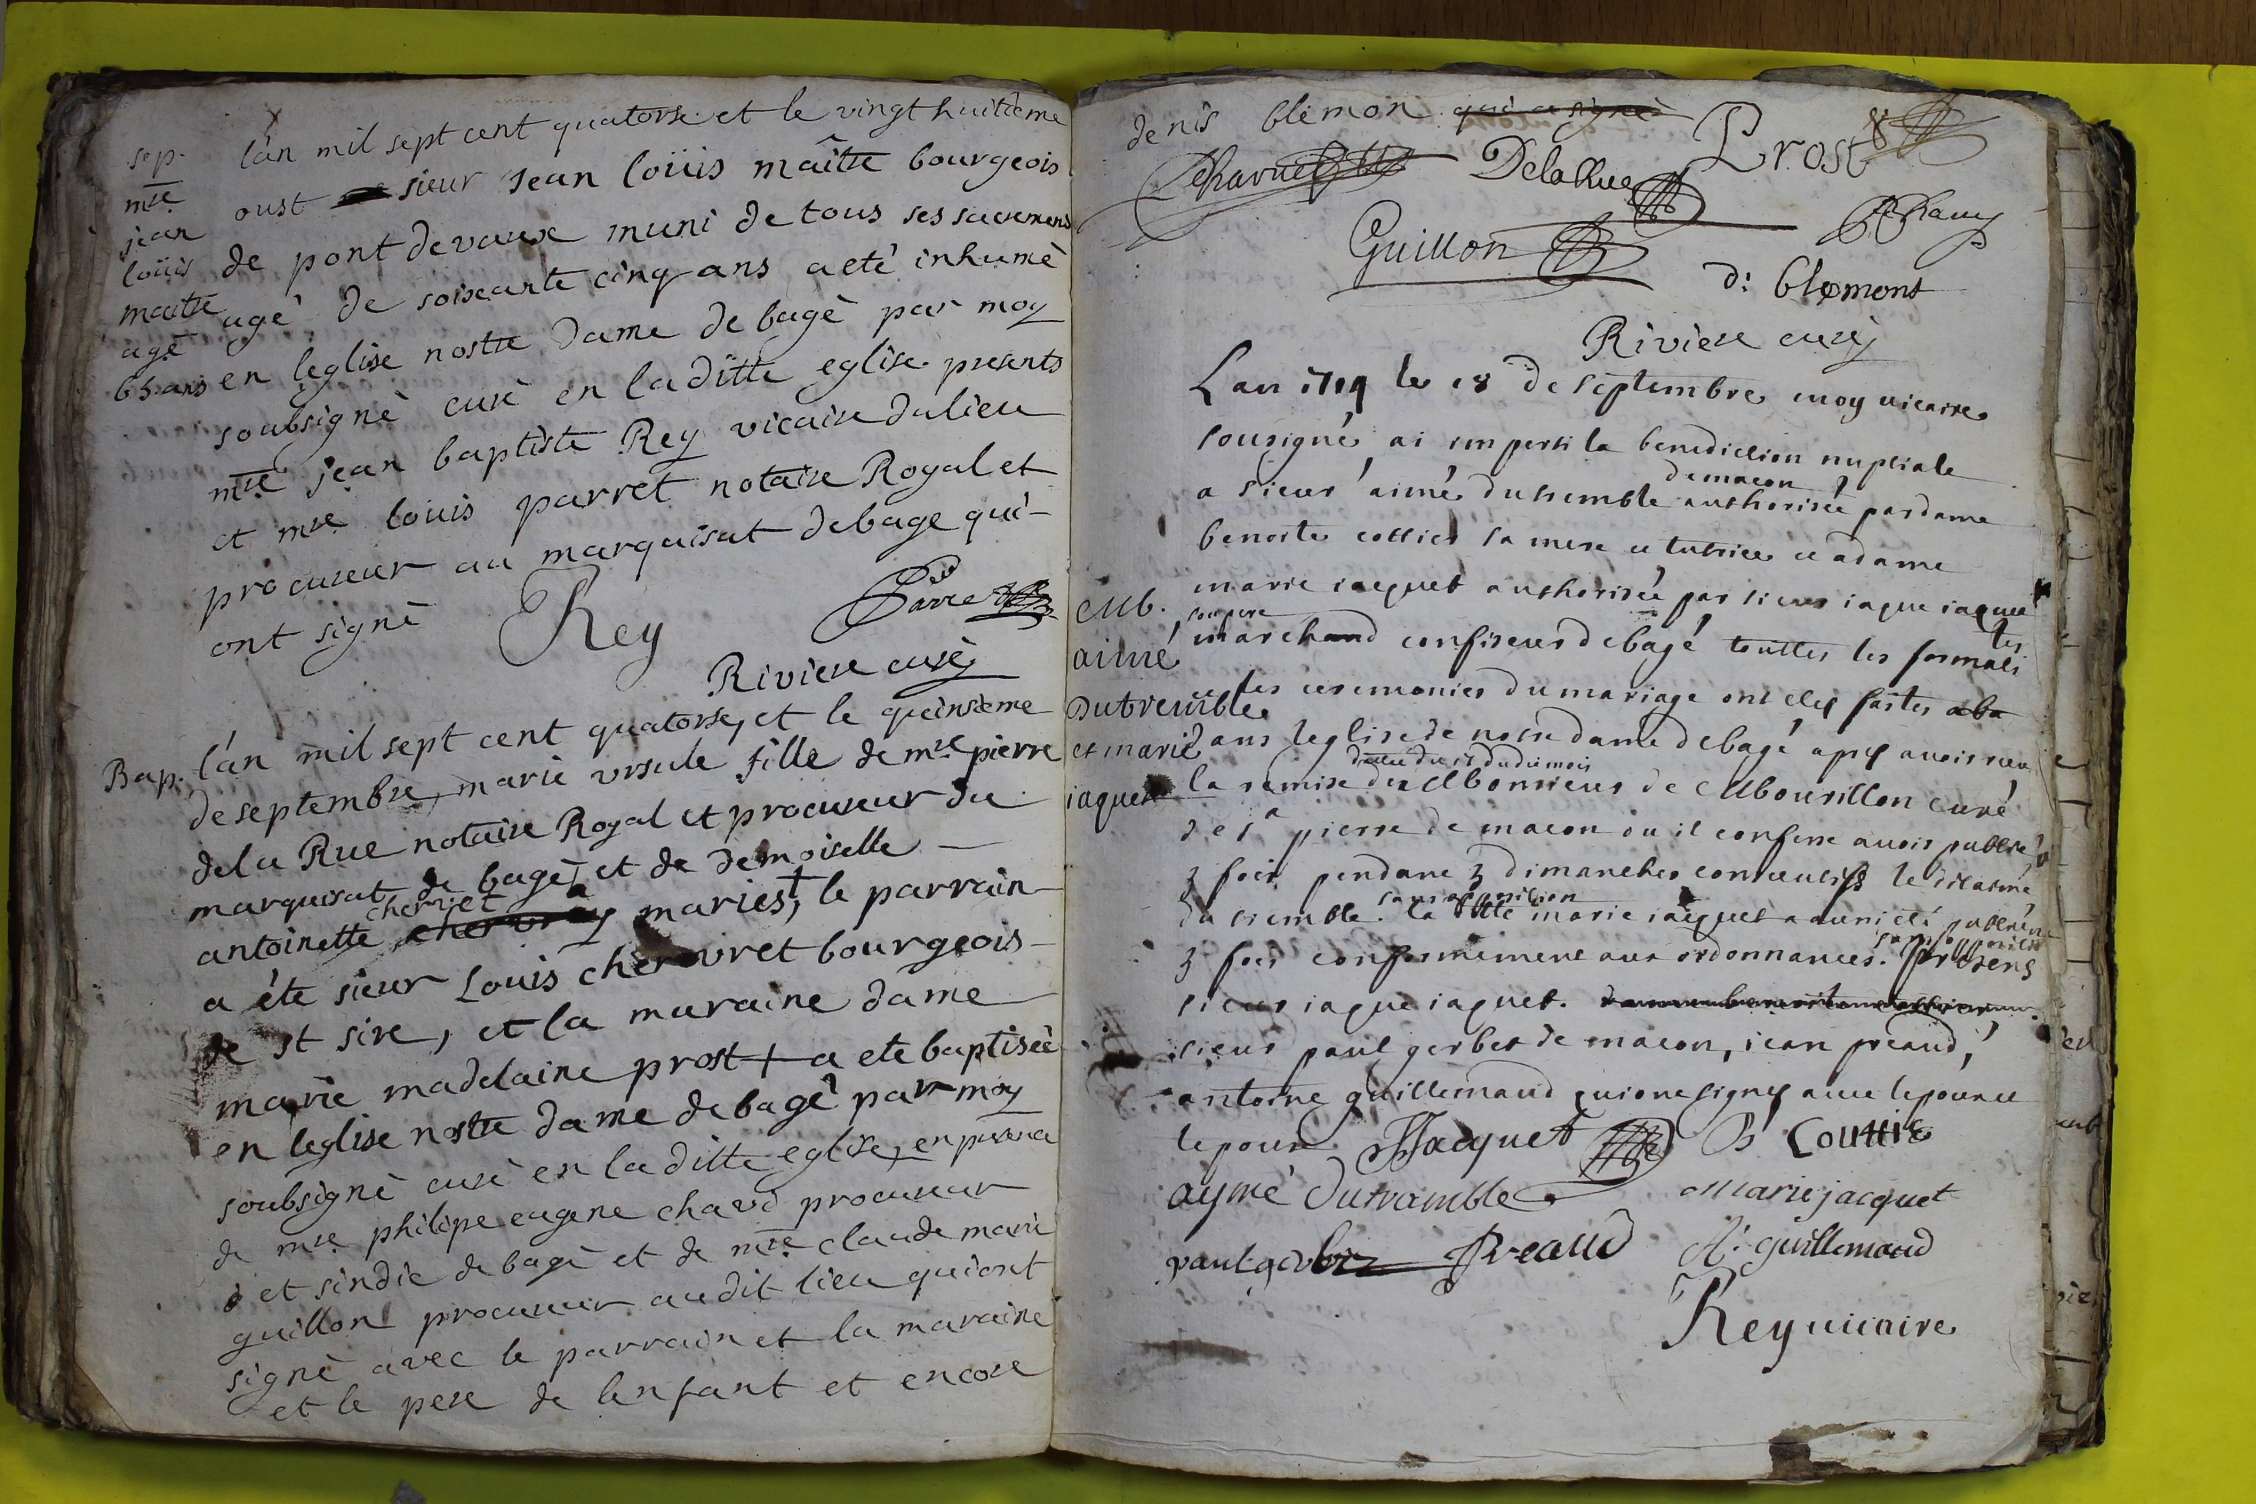 sep. l'an mil sept cent quatorse et le vingt huitieme
mre oust sieur jean loüis maitre bourgeois
jean
loüis de pont devaux muni de tous ses sacremens
maitre agé de soixante cinq ans a eté inhumé
agé
65 ans en leglise nostre dame de bagé par moy
soubsigné curé en laditte eglise presents
mre jean baptiste Rey vicaire dulieu
et mre loüis parret notaire Royal et
procureur au marquisat de bage qui
ont signé Rey Parret
Riviere curé
Bap. l'an mil sept cent quatorse, et le quinsieme
de septembre, marie ursule fille de mre pierre
dela Rue notaire Royal et procureur du
marquisat de bagé, et de demoiselle
chervret
antoinette mariés, le parrain
a été sieur Louis chervret bourgeois
de st sire, et la maraine dame
marie madelaine prost + a ete baptiseé
en leglise nostre dame de bagé par moy
soubsigné curé en laditte eglise, en presence
de mre philipe eugene chavd procureur
et sindic de bagé et de mre claude marie
guillon procureur audit lieu qui ont
signé avec le parrain et la maraine
et le pere de lenfant et encore
denis blemon qui a signé Prost
Chavuet DelaRue
Guillon Chauy
d: blemont
Riviere curé
Lan 1714 le 18 de septembre moy vicaire
sousigné ai imperti la benediction nuptiale
de macon
a sieur aimé dutremble authorisée par dame
benoite cottier sa mere et tutrice et a dame
Mb. marie iaquet authorisée par sieur iaque iaquet
son pere
aimé marchand confiseur de bagé touttes les formali
tes
Dutremble et les ceremonies du mariage ont etes faites
et marie dans leglise de notre dame de bagé apres avoir reu
iaquet la remise de Monsieur de Mbourillon curé
de st pierre de macon ou il confesse avoir publié
3 fois pendant 3 dimanches consecutifs ledit aimé
sans opposition
du tremble. la ditte marie iaquet a aussi eté publiée
sans opposition
3 fois conformement aux ordonnances. presens
sieur iaque iaquet.
sieur paul gerbet de macon, iean preaud,
antoine guillemaud qui ont signes avec lepoux et
lepouse JJacquet B Couttier
aymé Dutramble Marie jacquet
paul gerbez Preaud A. guillemaud
Rey vicaire